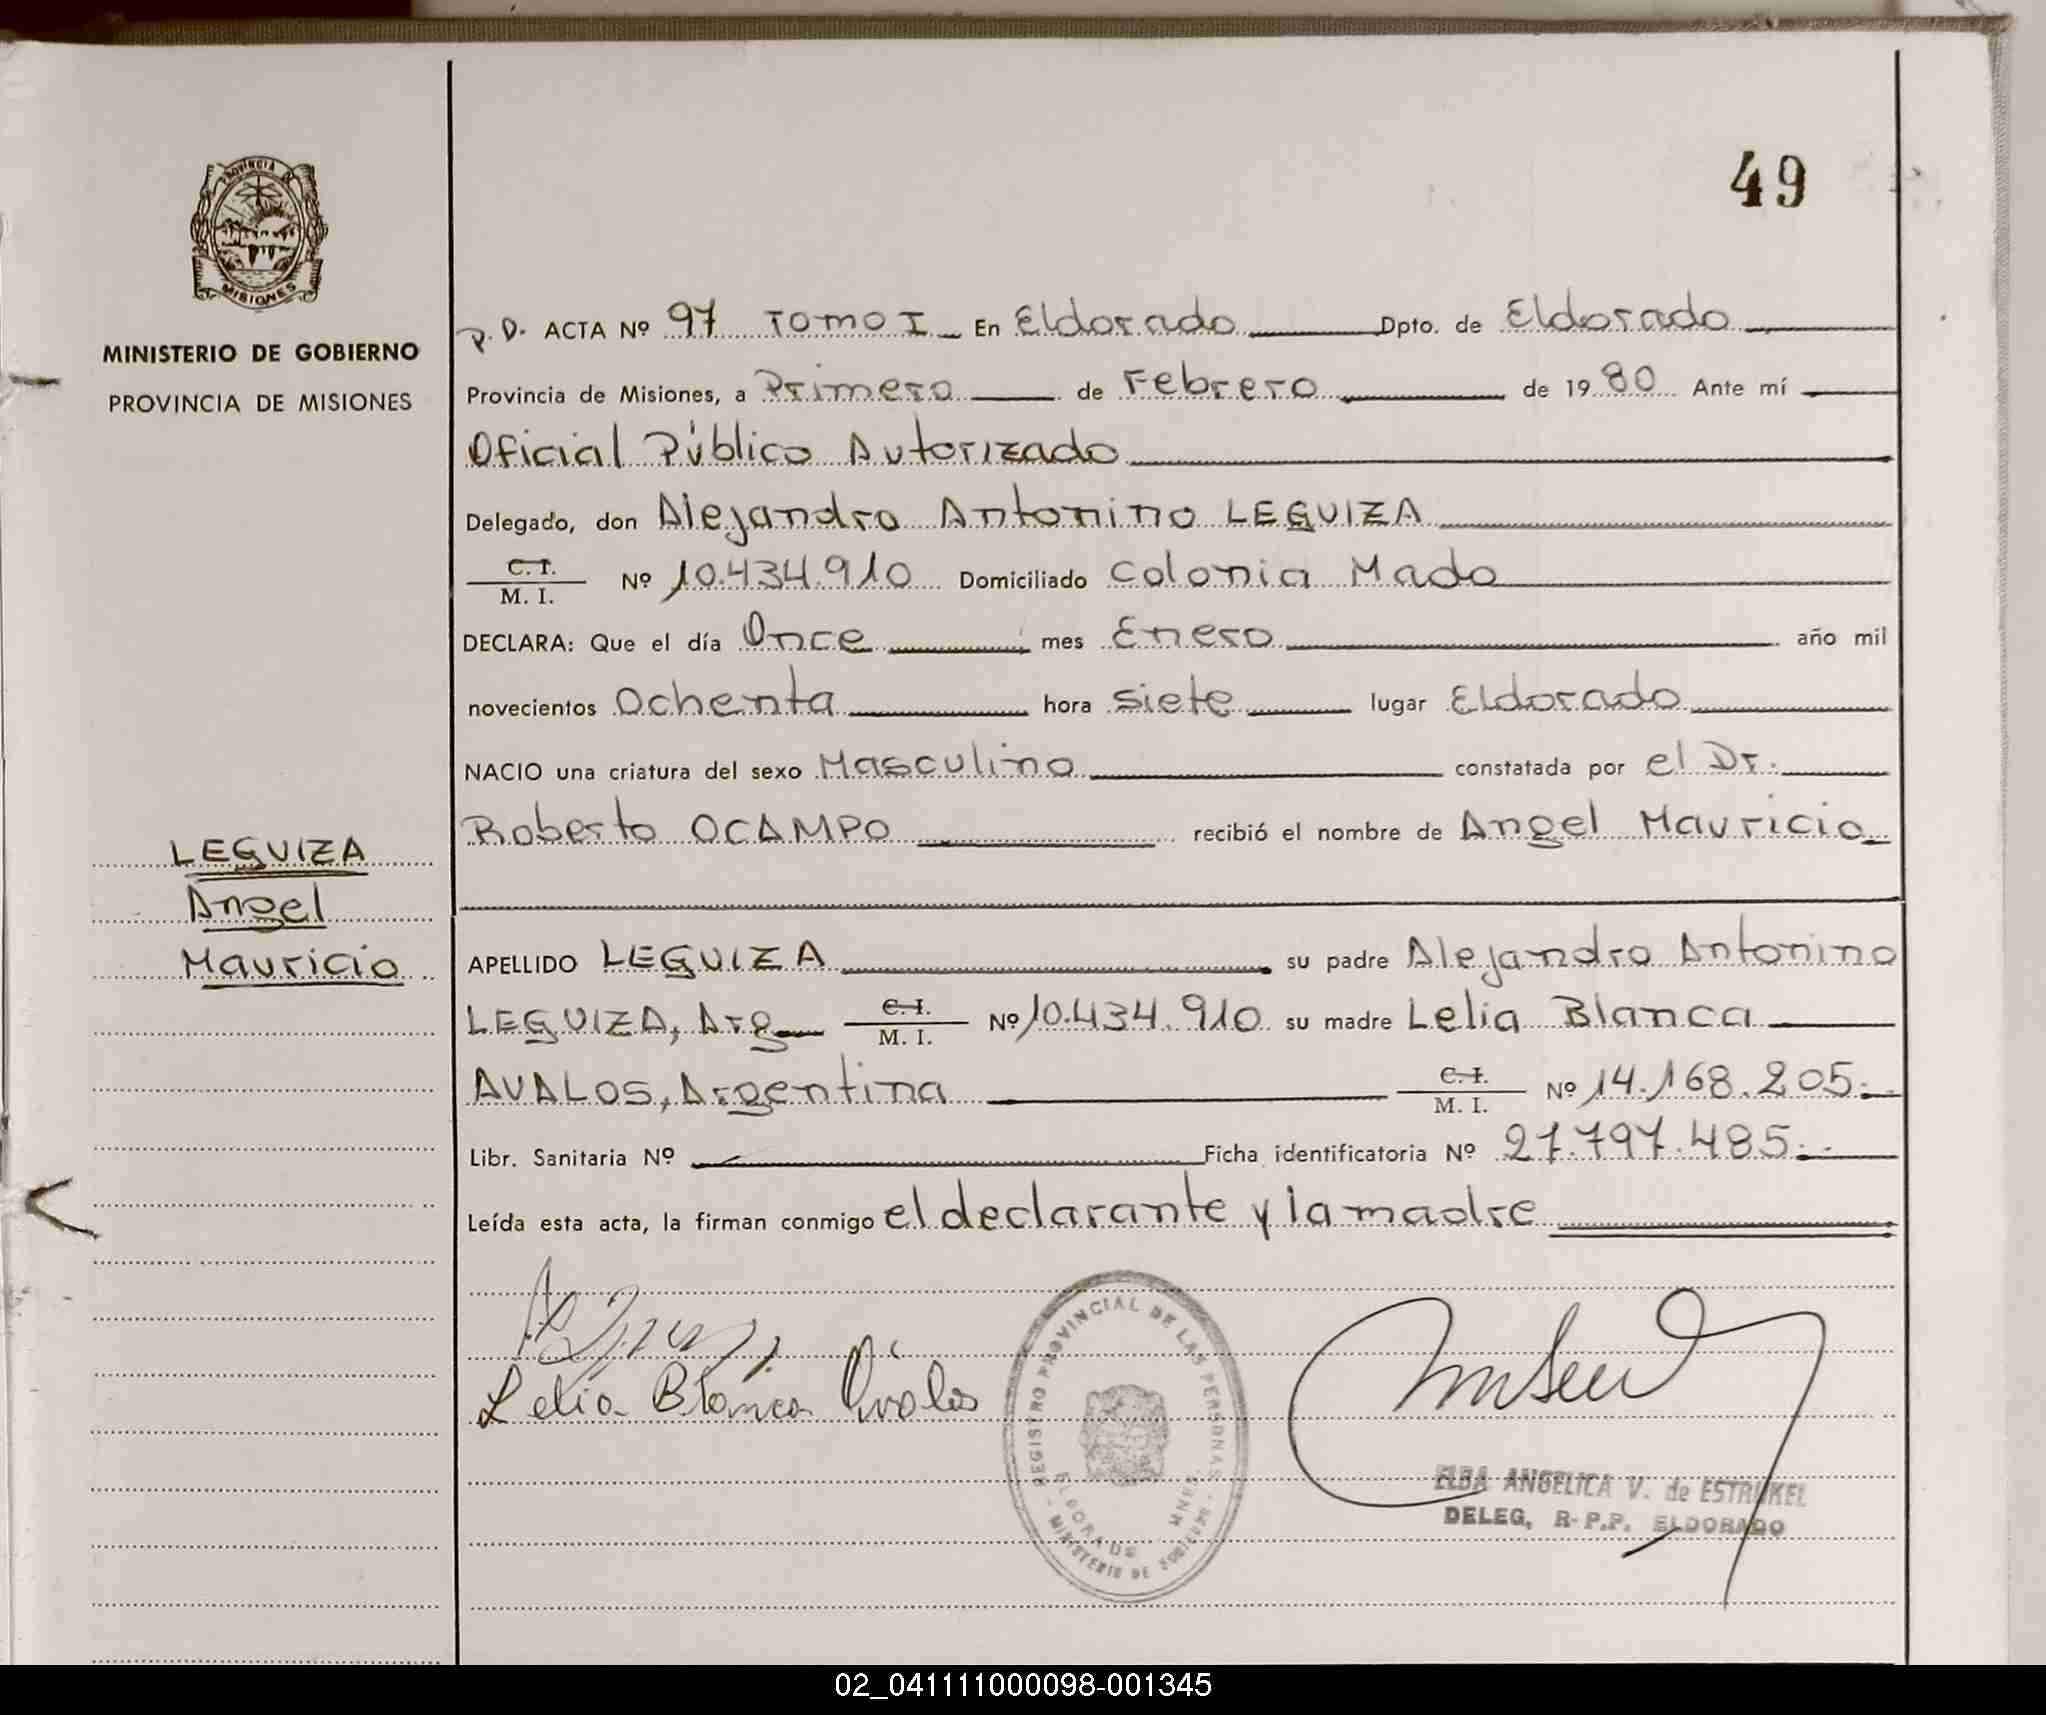 49
PROVINCIA DE
MISIONES
MINISTERIO DE GOBIERNO
PROVINCIA DE MISIONES
P. D. ACTA Nº 97 TOMO I En Eldorado Dpto. de Eldorado
Provincia de Misiones, a Primero de Febrero de 1980 Ante mí
Oficial Público Autorizado
Delegado, don Alejandro Antonino LEGUIZA
C. I.
M. I. Nº 10.434.910 Domiciliado Colonia Mado
DECLARA: Que el día Once mes Enero año mil
novecientos Ochenta hora siete lugar Eldorado
NACIO una criatura del sexo Masculino constatada por el Dr.
Roberto OCAMPO recibió el nombre de Angel Mauricio
LEGUIZA
Angel
Mauricio
APELLIDO LEGUIZA su padre Alejandro Antonino
LEGUIZA, Arg C. I. M. I. Nº 10.434.910 su madre Lelia Blanca
AVALOS, Argentina C. I. M. I. Nº 14.168.205.
Libr. Sanitaria Nº Ficha identificatoria Nº 27.797.485.
Leída esta acta, la firman conmigo el declarante y la madre
Lelia Blanca Avalos
REGISTRO PROVINCIAL DE LAS PERSONAS
ELDORADO MNES.
MINISTERIO DE GOBIERNO
ELBA ANGELICA V. de ESTRUKEL
DELEG, R-P.P. ELDORADO
02_041111000098-001345